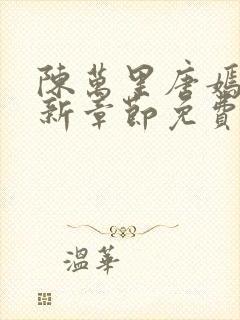 陳萬里唐嫣
新章節免費
溫華